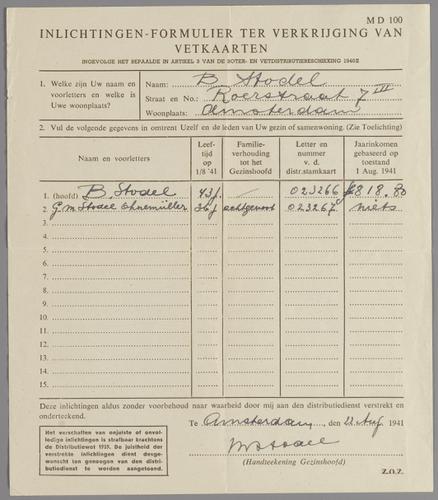 M D 100
INLICHTINGEN-FORMULIER TER VERKRIJGING VAN
VETKAARTEN
INGEVOLGE HET BEPAALDE IN ARTIKEL 3 VAN DE BOTER- EN VETDISTRIBUTIEBESCHIKKING 1940 II
1. Welke zijn Uw naam en voorletters en welke is Uwe woonplaats?
Naam: B Stodel
Straat en No.: Roerstraat 7 III
Woonplaats: Amsterdam
2. Vul de volgende gegevens in omtrent Uzelf en de leden van Uw gezin of samenwoning. (Zie Toelichting)
Naam en voorletters
Leeftijd op 1/8 '41
Familieverhouding tot het Gezinshoofd
Letter en nummer v. d. distr.stamkaart
Jaarinkomen gebaseerd op toestand 1 Aug. 1941
1. (hoofd) B. Stodel 43 j. — 023266 818.80
2. G. M Stodel Ohnemüller 36 j echtgenoot 023267 niets
3.
4.
5.
6.
7.
8.
9.
10.
11.
12.
13.
14.
15.
Deze inlichtingen aldus zonder voorbehoud naar waarheid door mij aan den distributiedienst verstrekt en
onderteekend.
Te Amsterdam, den 22 Aug 1941
Het verschaffen van onjuiste of onvol-
ledige inlichtingen is strafbaar krachtens
de Distributiewet 1939. De juistheid der
verstrekte inlichtingen dient desge-
wenscht ten genoegen van den distri-
butiedienst te worden aangetoond.
BStodel
(Handteekening Gezinshoofd)
Z.O.Z.